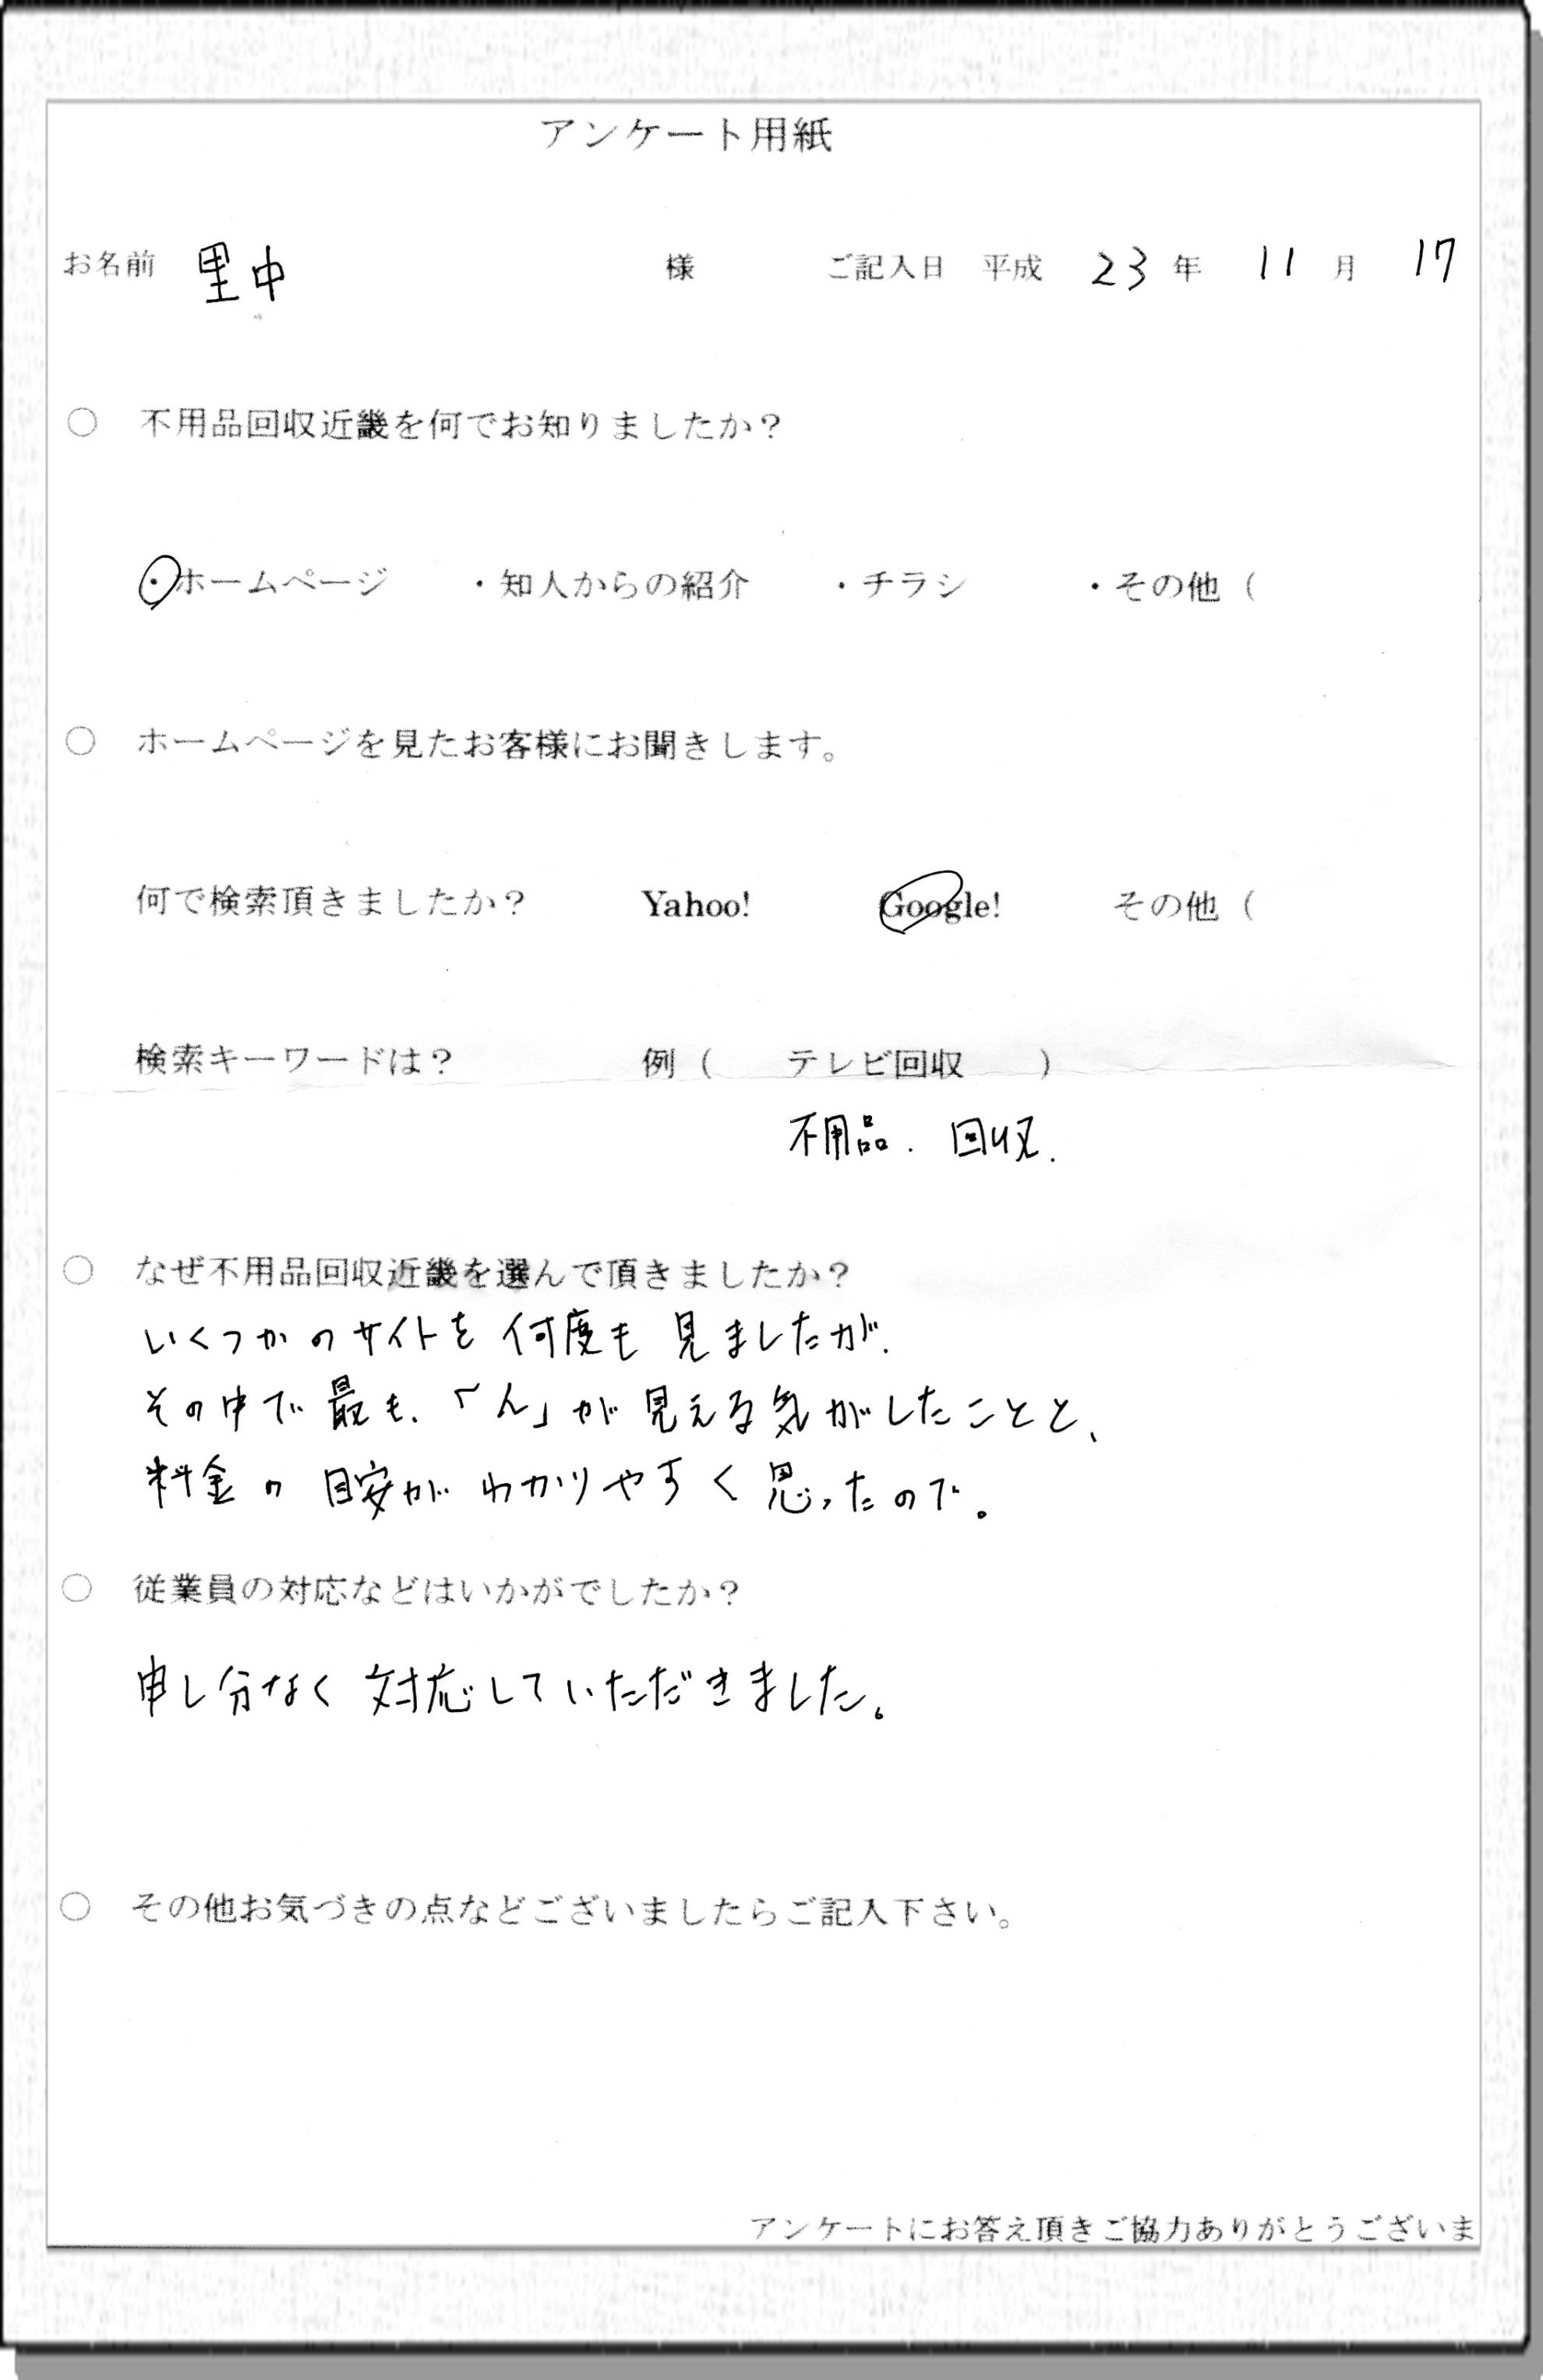 アンケート用紙
お名前 里中 様 ご記入日 平成 23 年 11 月 17
○ 不用品回収近畿を何でお知りましたか？
・ホームページ ・知人からの紹介 ・チラシ ・その他（
○ ホームページを見たお客様にお聞きします。
何で検索頂きましたか？ Yahoo! Google! その他（
検索キーワードは？ 例（ テレビ回収 ）
不用品. 回収.
○ なぜ不用品回収近畿を選んで頂きましたか？
いくつかのサイトを何度も見ましたが、
その中で最も、「人」が見える気がしたことと、
料金の目安がわかりやすく思ったので。
○ 従業員の対応などはいかがでしたか？
申し分なく対応していただきました。
○ その他お気づきの点などございましたらご記入下さい。
アンケートにお答え頂きご協力ありがとうございま